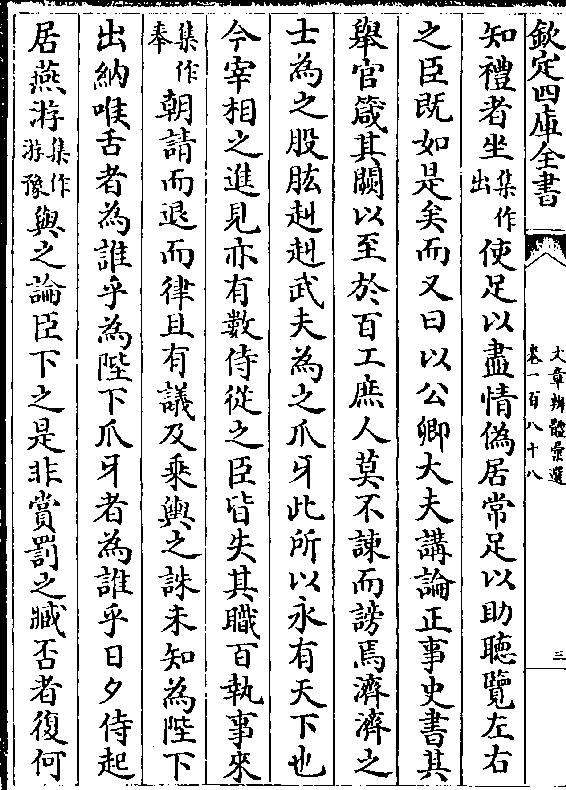 欽定四庫全書
文章辨體彙選
卷一百八十八
三
知禮者坐集作出使足以盡情偽居常足以助聽覽左右
之臣既如是矣而又曰以公卿大夫講論正事史書其
舉官箴其闕以至於百工庶人莫不諫而謗焉濟濟之
士為之股肱赳赳武夫為之爪牙此所以永有天下也
今宰相之進見亦有數侍從之臣皆失其職百執事來
集作奉朝請而退而律且有議及乘輿之誅未知為陛下
出納喉舌者為誰乎為陛下爪牙者為誰乎日夕侍起
居燕游集作游豫與之論臣下之是非賞罰之臧否者復何